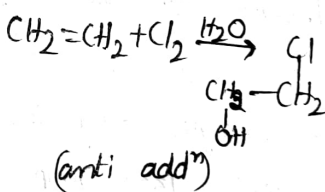 CH₂=CH₂+Cl₂ H₂O→
Cl
CH₂—CH₂
OH
(anti addⁿ)